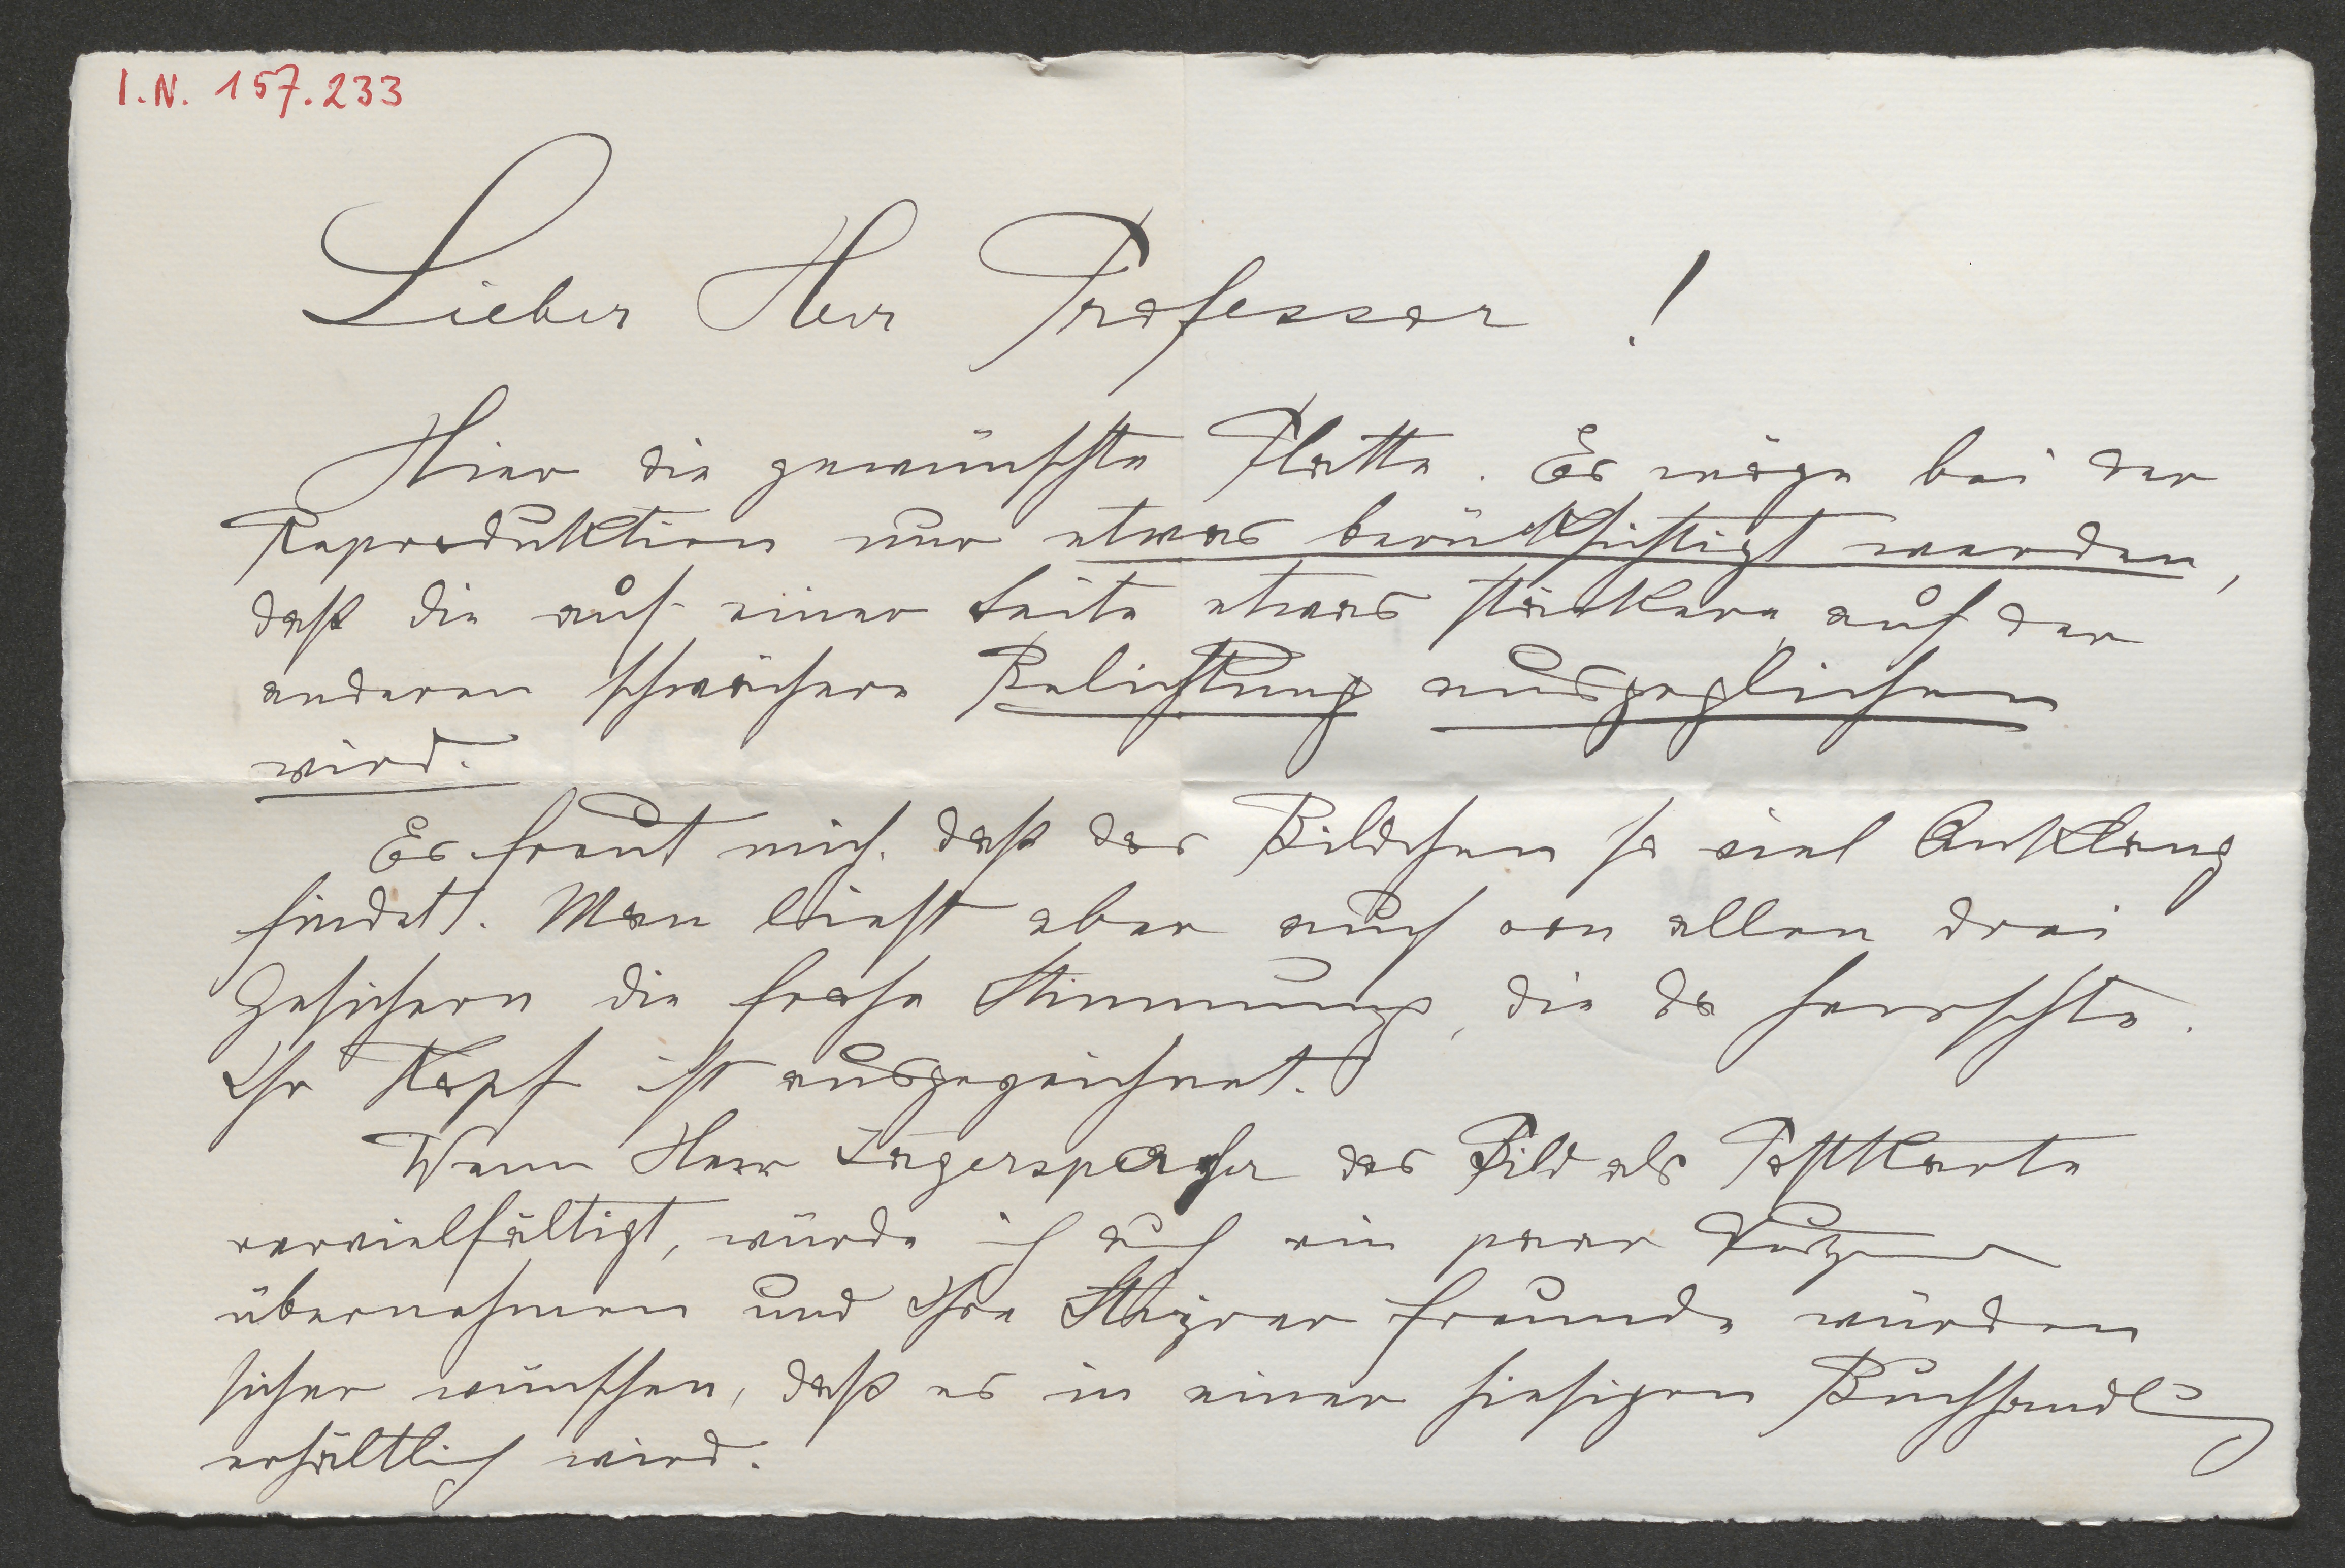 I.N. 157.233
Lieber Herr Professor!
Hier die gewünschte Platte. Es möge bei der
Reproduktion nur etwas berücksichtigt werden,
daß die auf einer Seite etwas stärkere, auf der
anderen schwächere Belichtung ausgeglichen
wird.
Es freut mich, daß das Bildchen so viel Anklang
findet. Man liest aber auch von allen drei
Gesichern die frohe Stimmung, die da herrschte.
Ihr Kopf ist ausgezeichnet.
Wenn Herr Jagerspacher das Bild als Postkarte
vervielfältigt, würde ich auch ein paar Dutzend
übernehmen und Ihre Steyrer Freunde würden
sicher wünschen, daß es in einer hiesigen Buchhandlg
erhältlich wird.